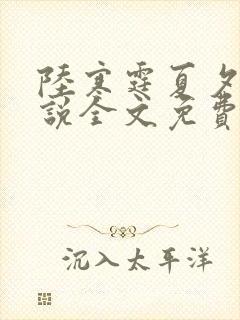 陸寒霆夏夕
說全文免費
沉入太平洋